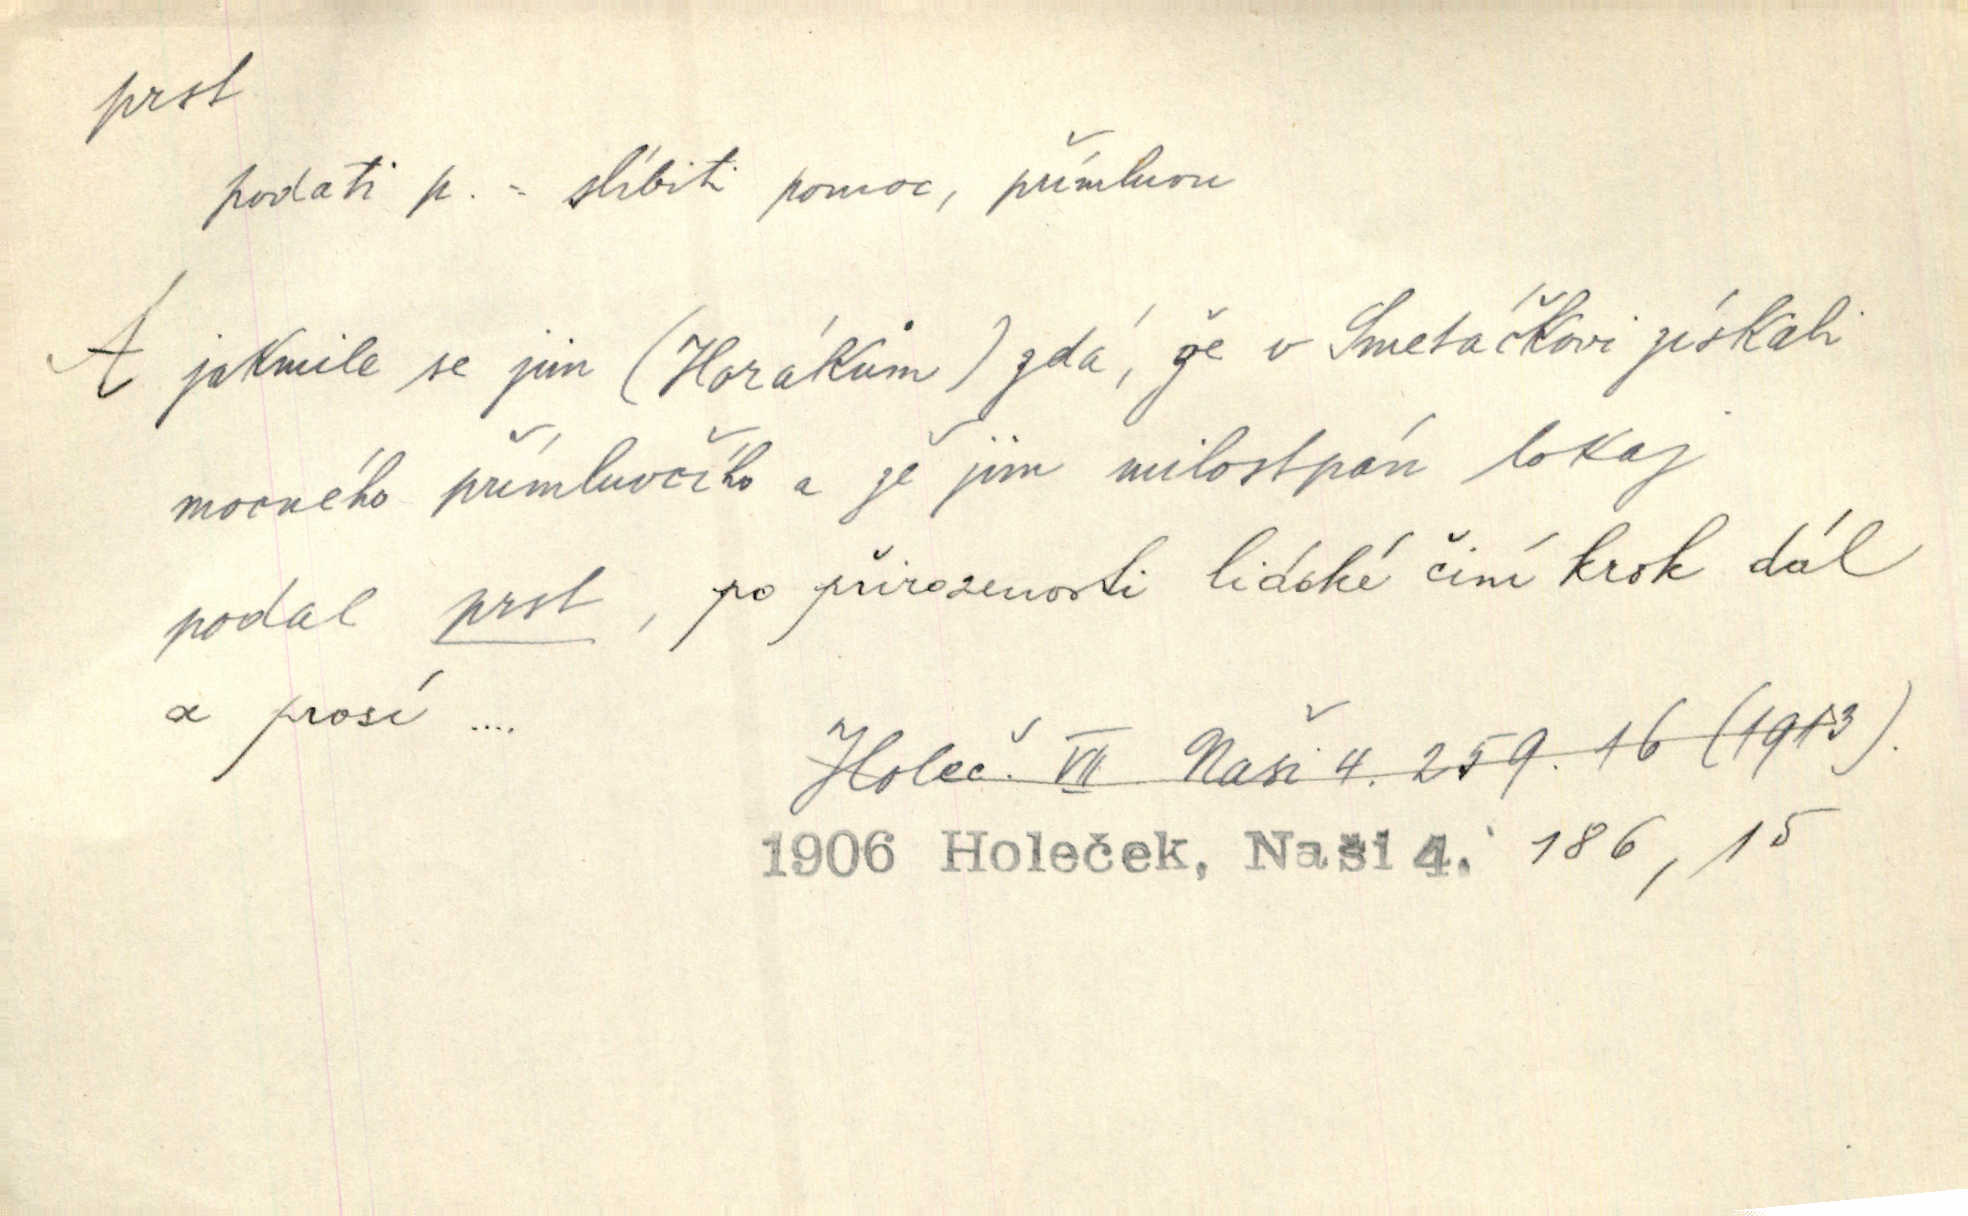 prst
podati p. = slíbiti pomoc, přímluvu
A jakmile se jim (Horákům) zdá, že v Smetáčkovi získali
mocného přímluvčího a že jim milostpán lokaj
podal prst, po přirozenosti lidské činí krok dál
a prosí ....
Holeč. VII Naši 4. 259. 16 (1913).
1906 Holeček, Naši 4. 186, 15